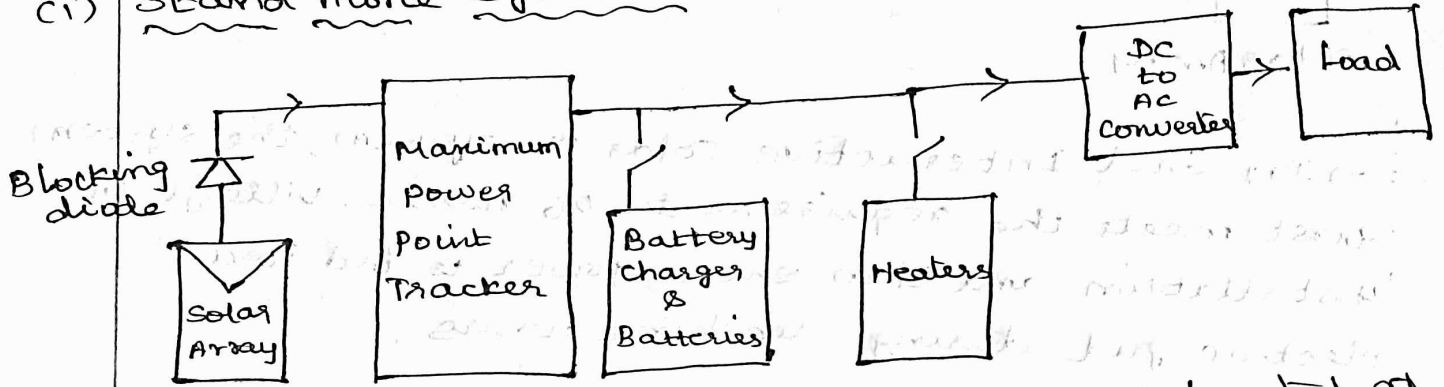 (i)
Blocking
diode
Solar
Array
Maximum
Power
Point
Tracker
Battery
Charger
&
Batteries
Heaters
DC
to
AC
Converter
Load